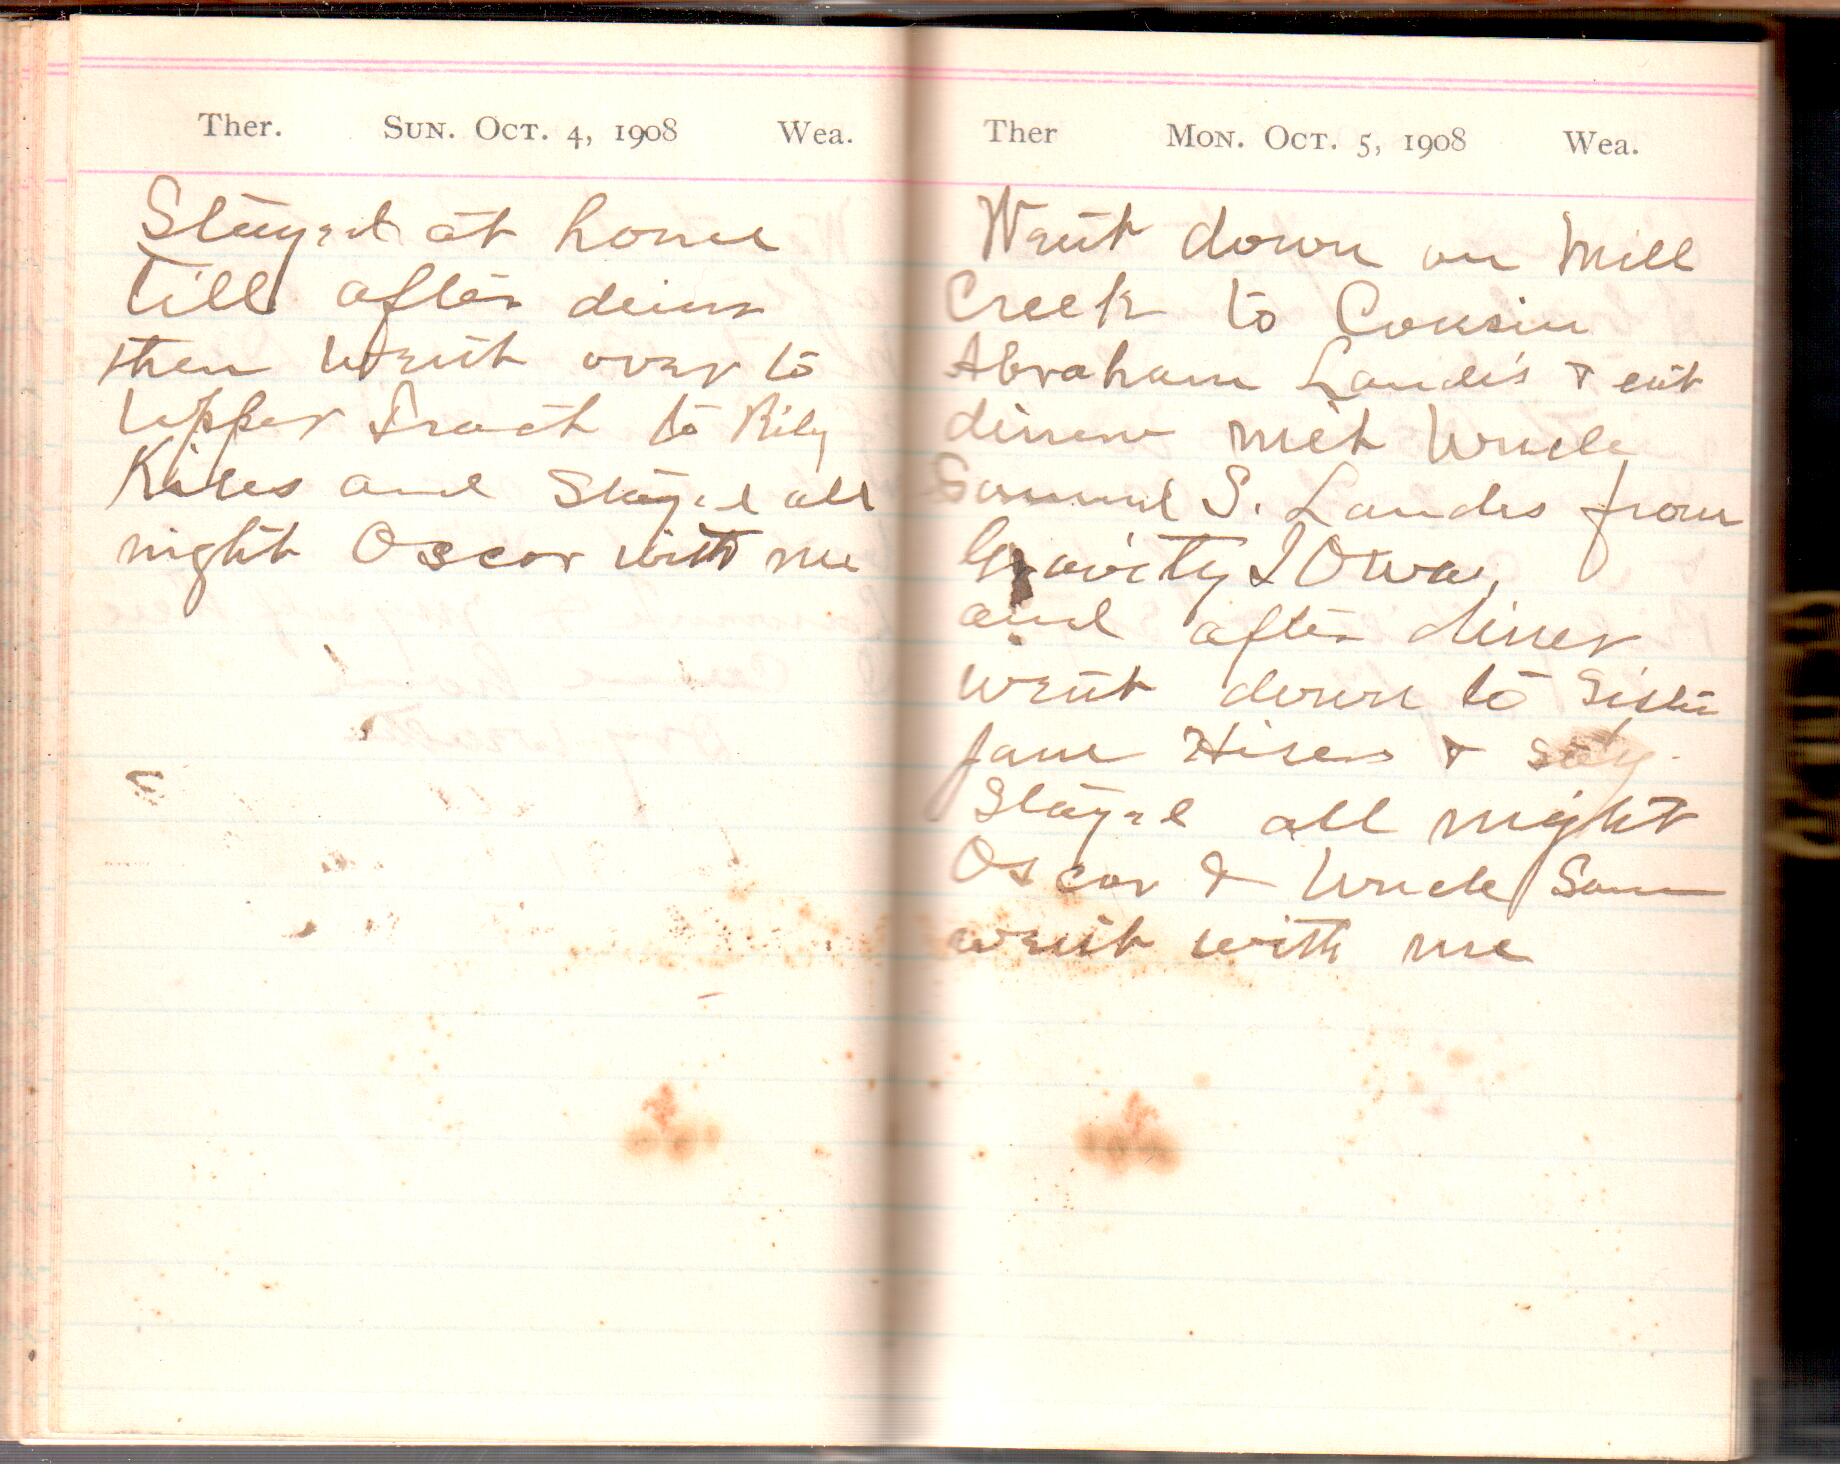 Ther. Sun. Oct. 4, 1908 Wea.
Stayed at home
till after diner
then went over to
Upper Tract to Rily
Kises and Stayed all
night Oscar with me
Ther Mon. Oct. 5, 1908 Wea.
Went down on Mill
Creek to Cousin
Abraham Landis & eat
dinner met Uncle
Samuel S. Landes from
Gravity IOwa,
and after diner
went down to Sister
Jane Hisers & Stay
Stayed all night
Oscar & Uncle Sam
went with me